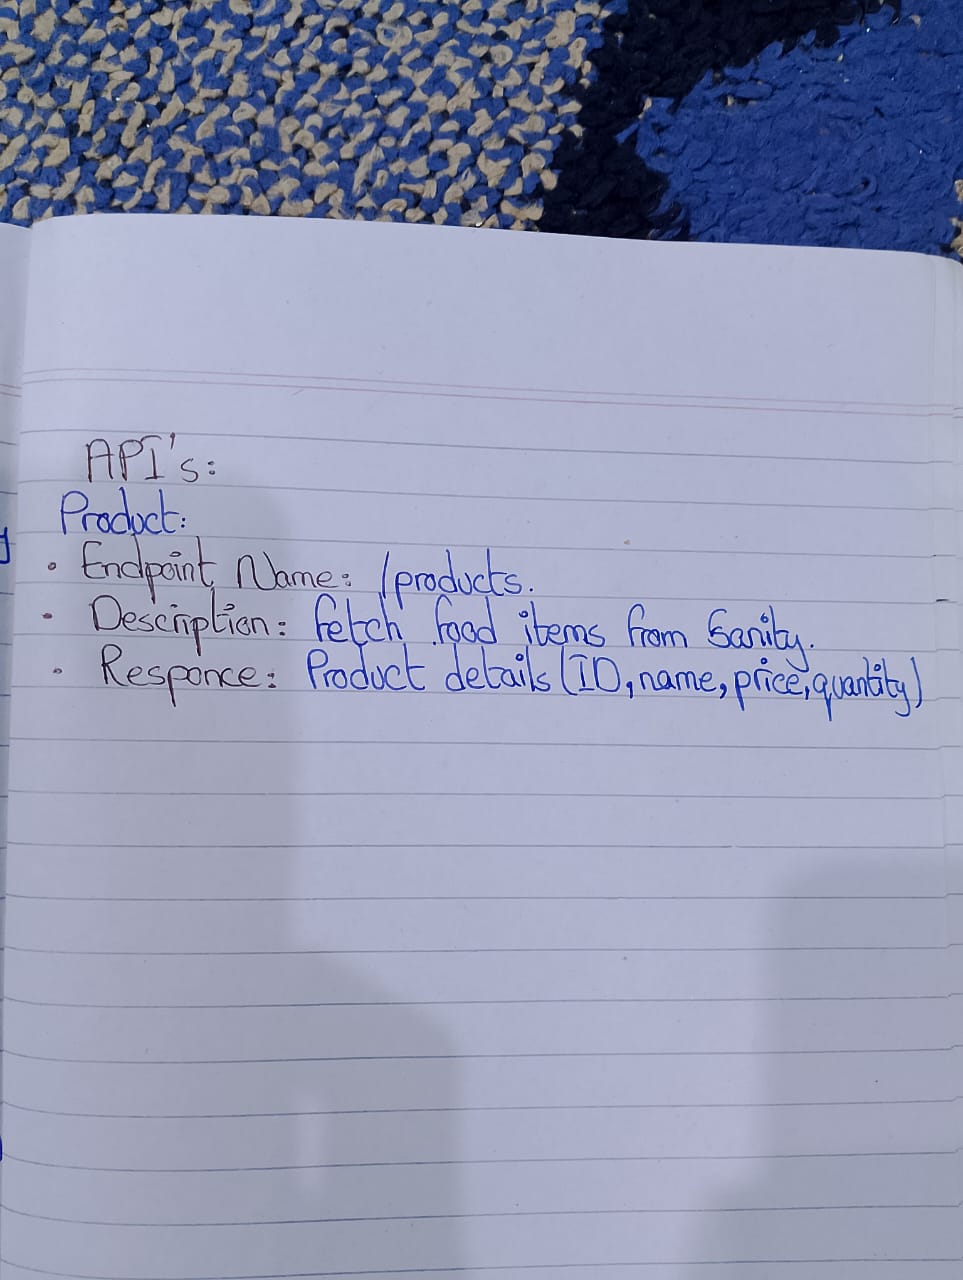 API's:
Product:
• Endpoint Name: /products.
• Description: Fetch food items from Sanity.
• Responce: Product details (ID, name, price, quantity)